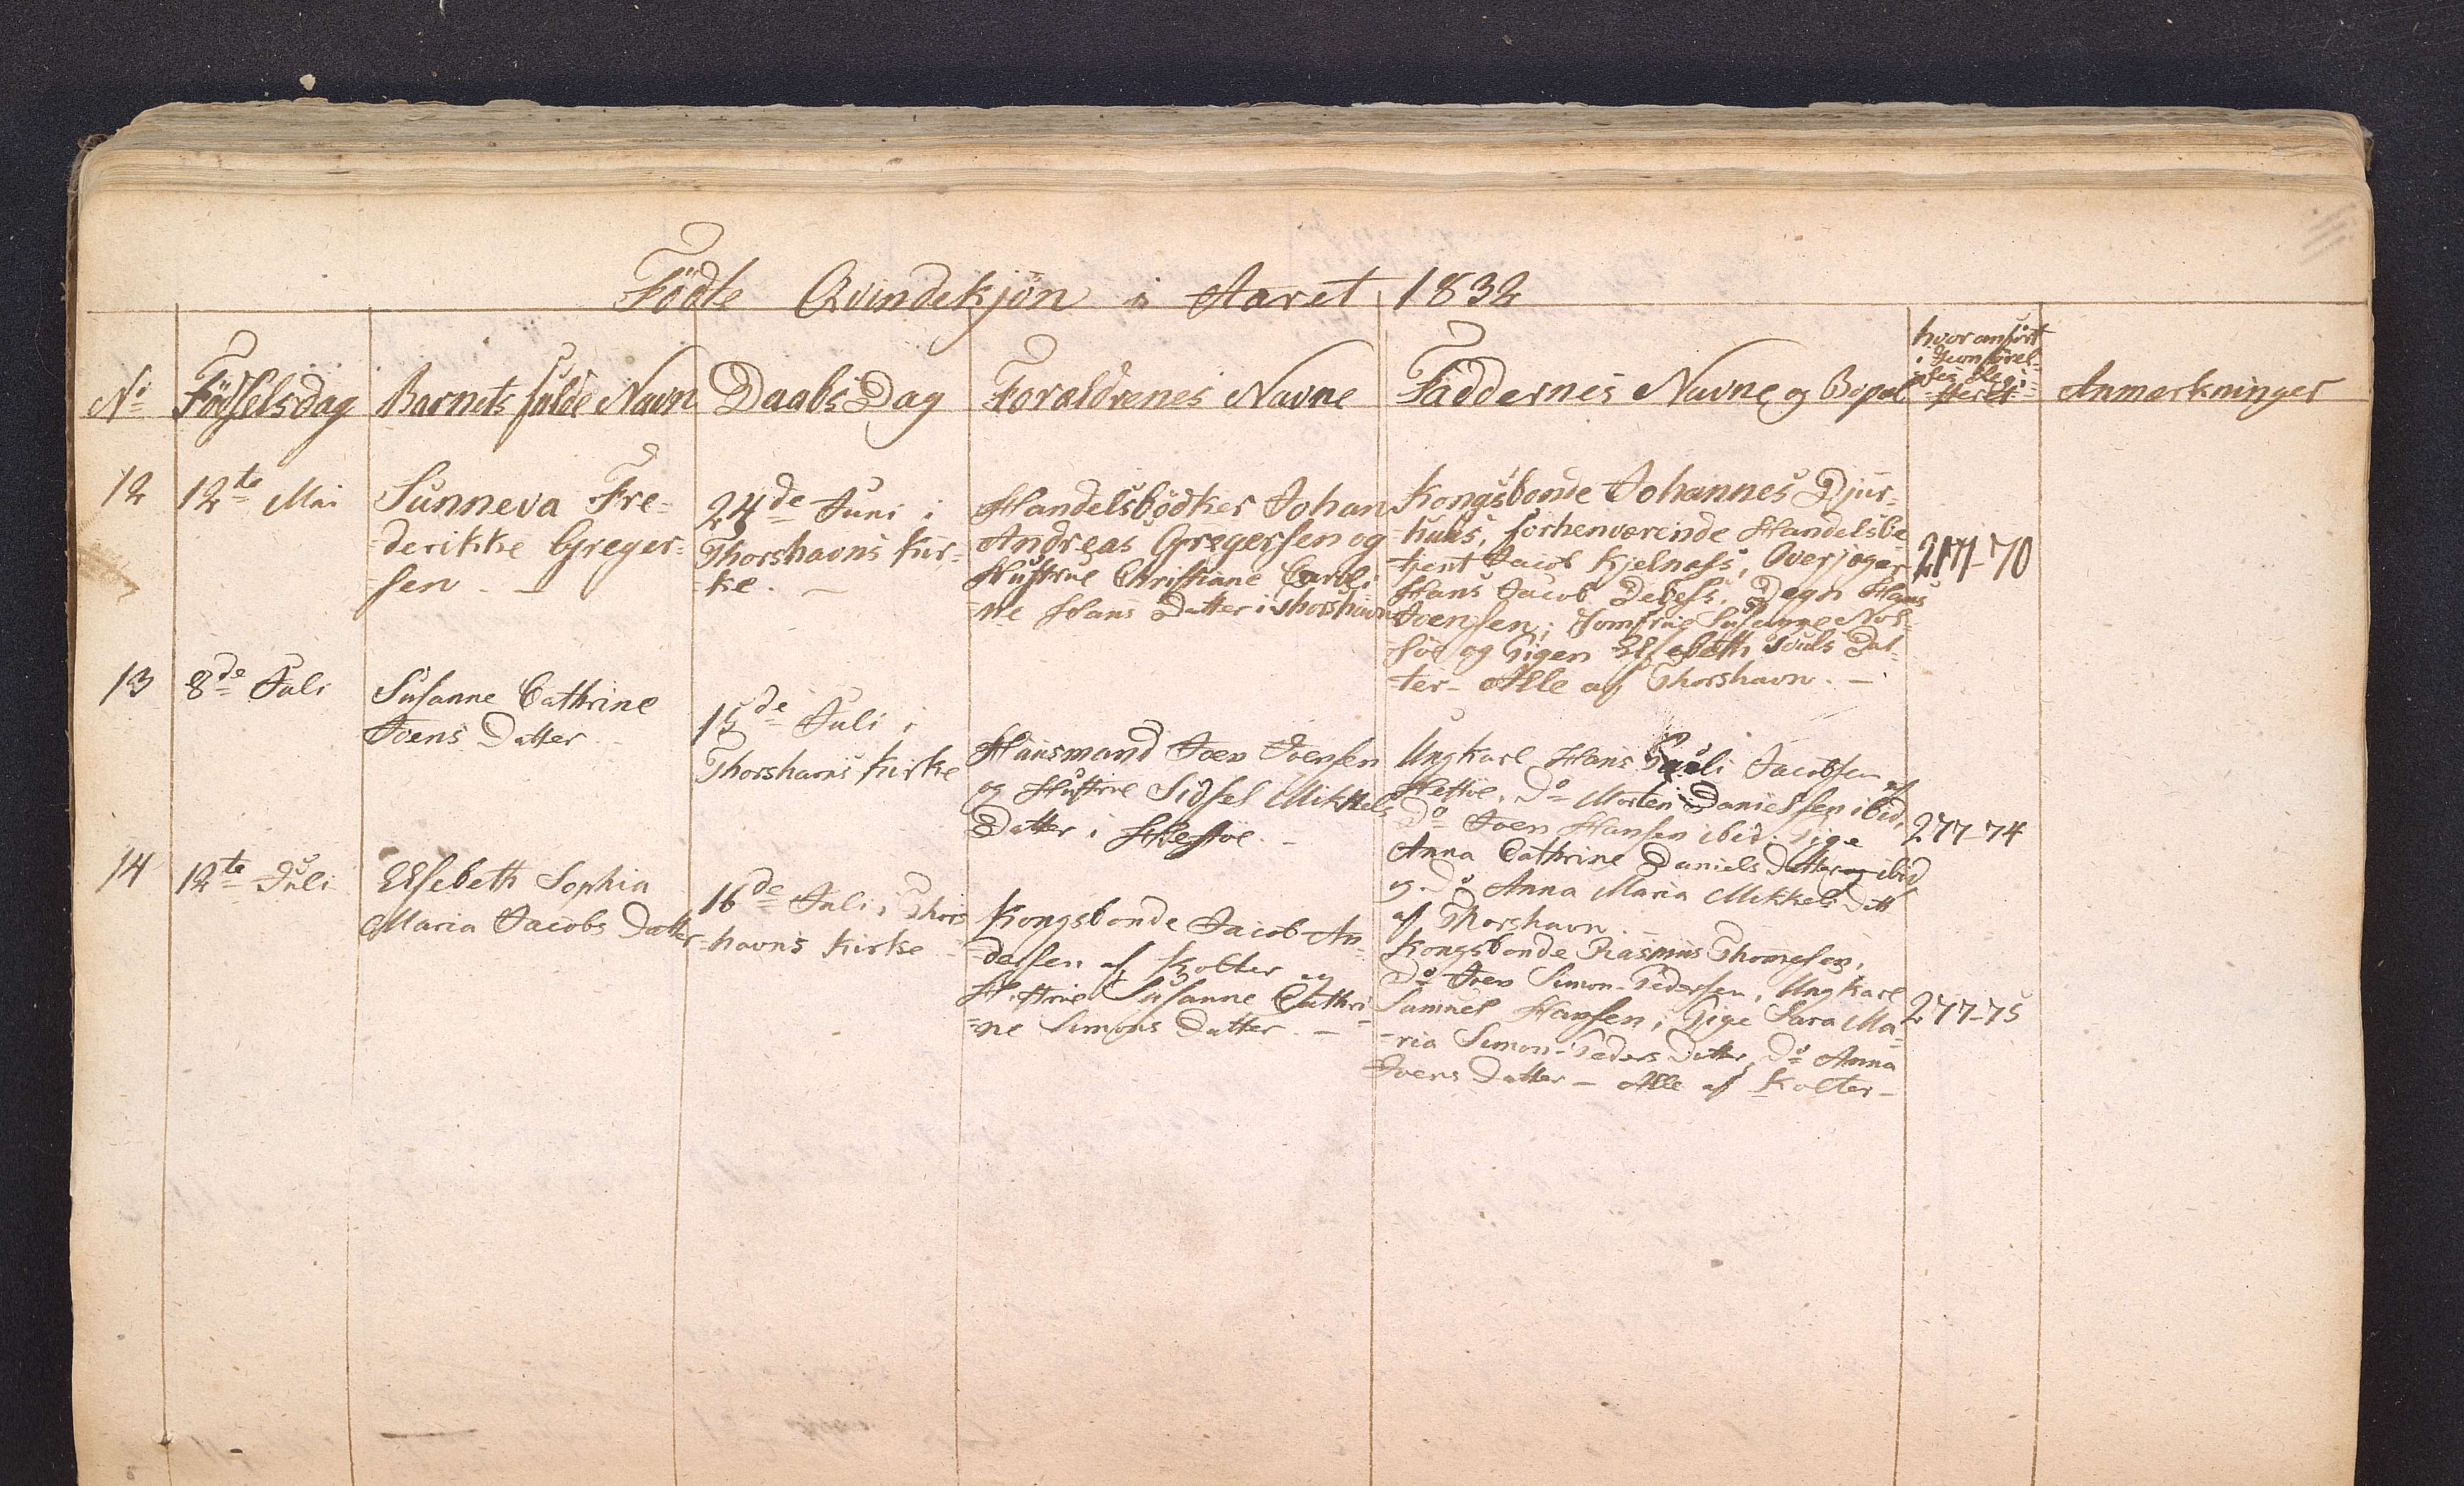 Födte Qvindekjön i Aaret 1832
No
Födselsdag
Barnets fulde Navn
Daabs Dag
Forældrenes Navne
Faddernes Navne og Bopæl
hvor anfört
i Jevnförel-
ses Regi-
steret
Anmærkninger
12
12te Mai
Sunneva Fre-
-derikke Greger-
sen. —
24de Juni i
Thorshavns Kir-
-ke. —
Handelsbödker Johan
Andreas Gregersen og
Hustrue Christiane Caroli-
-ne Hans Datter i Thorshavn
Kongsbonde Johannes Djur-
huus, forhenværende Handelsbe-
tjent Jacob Kjelnæss, Overjæger
Hans Jacob Debess, Degn Hans
Joensen; Jomfrue Susanne Nol-
söe og Pigen Elsebeth Pouls Dat-
ter - Alle af Thorshavn. —
277-70
13
8de Juli
Susanne Cathrine
Joens Datter
15de Juli i
Thorshavns Kirke
Huusmand Joen Joensen
og Hustrue Sidsel Mikkels
Datter i Hestöe. -
Ungkarl Hans Pauli Jacobsen af
Hestöe, Do Morten Danielsen ibid,
Do Joen Hansen ibid. Pige
Anna Cathrine Daniels Datter ibid
og Do Anna Maria Mikkels Datt
af Thorshavn
277-74
14
12te Juli
Elsebeth Sophia
Maria Jacobs Datter
16de Juli i Thors
-havns Kirke
Kongsbonde Jacob An-
-dersen af Kolter og
Hustrue Susanne Cathri-
-ne Simons Datter. —
Kongsbonde Rasmus Thomesen,
Do Joen Simon-Pedersen, Ungkarl
Samuel Hansen; Pige Sara Ma-
-ria Simon-Peders Datter, Do Anna
Joens Datter - Alle af Kolter -
277-75